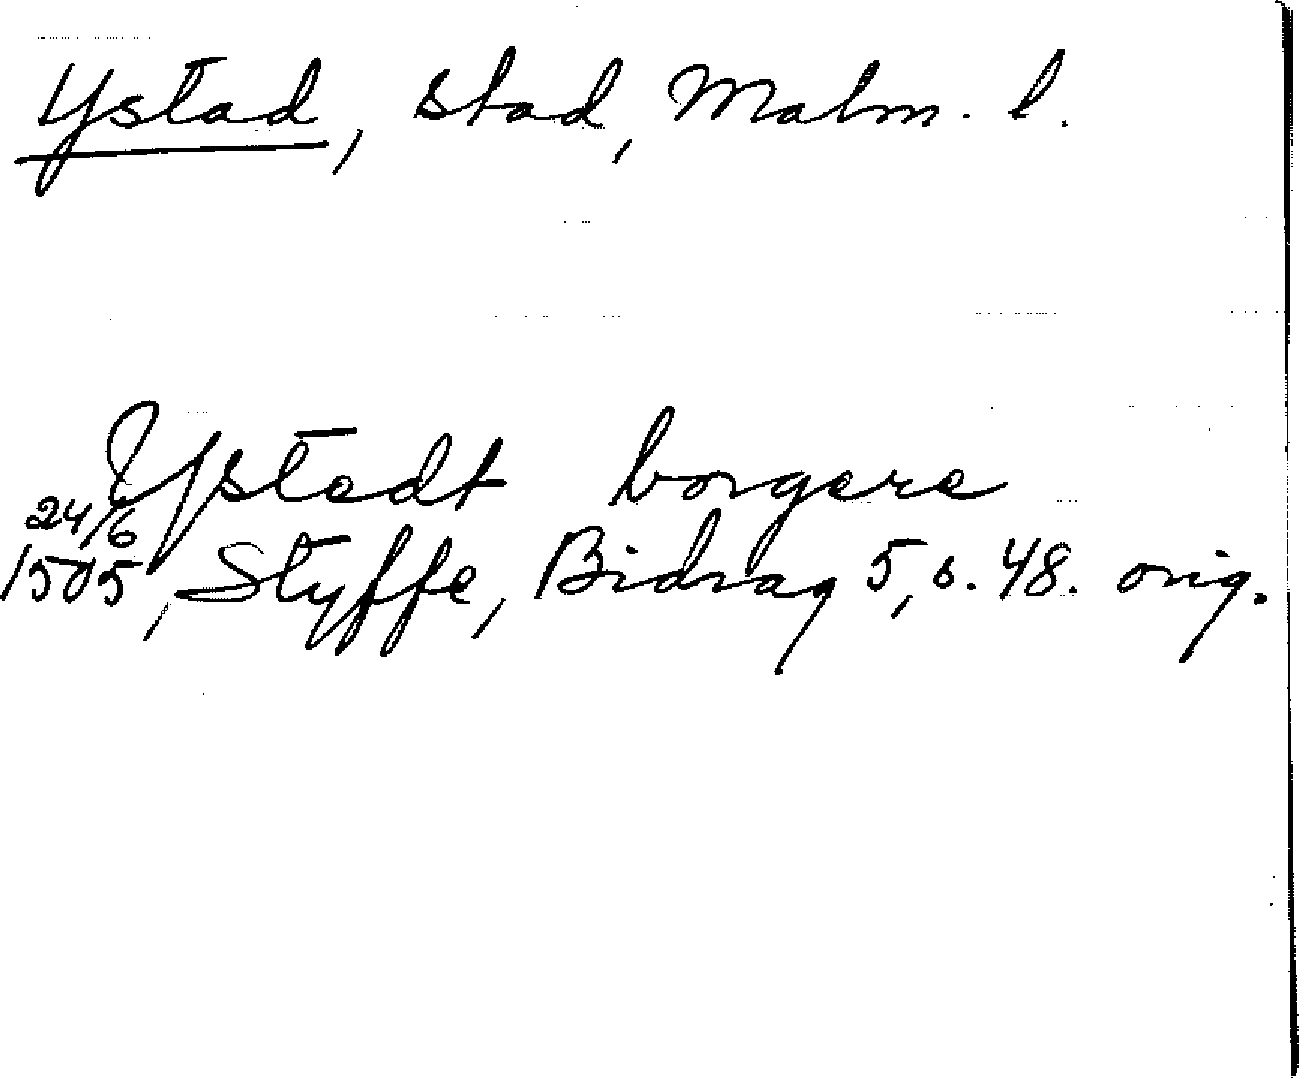 Ystad, stad, Malm. l.
Ystedt borgere
24/6
1505, Styffe, Bidrag 5, s. 48. orig.